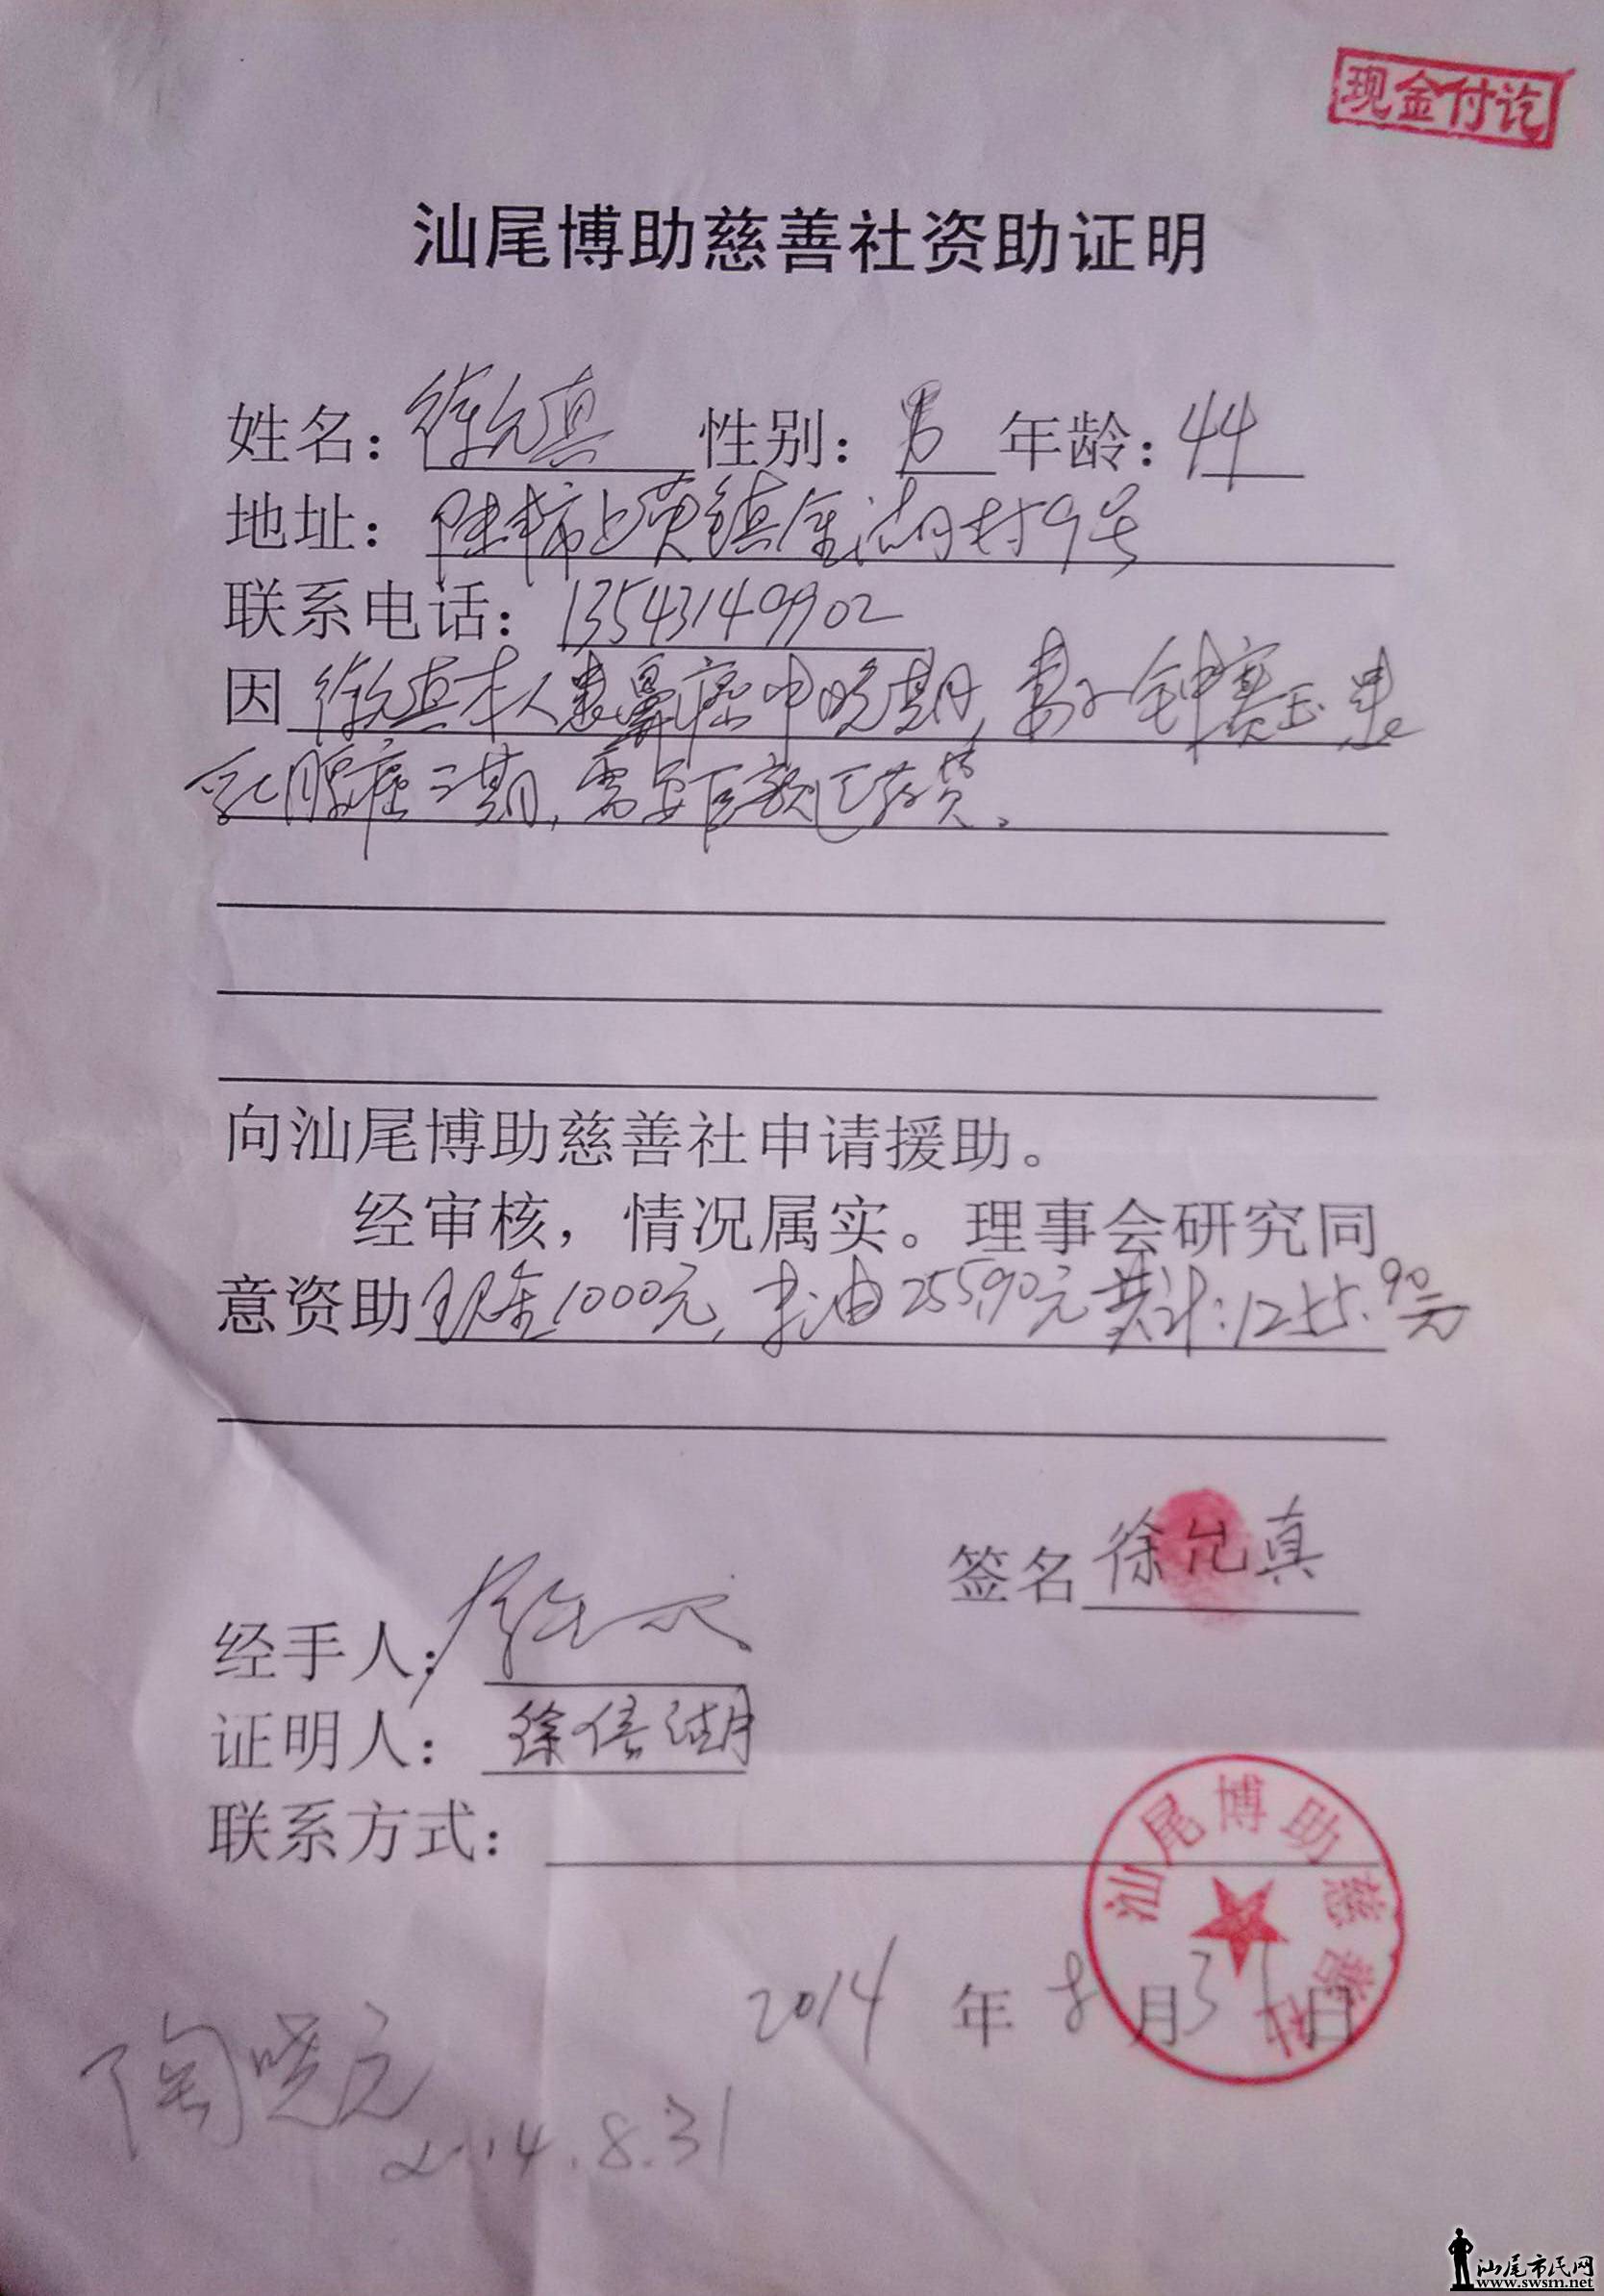 现金付讫
汕尾博助慈善社资助证明
姓名：徐允真 性别：男 年龄：44
地址：陆丰市上英镇金湖村9号
联系电话：13543149902
因徐允真本人患鼻癌中晚期，妻子钟赛玉患
乳腺癌二期，需要巨额医药费。
向汕尾博助慈善社申请援助。
经审核，情况属实。理事会研究同
意资助现金1000元，米油255.90元共计：1255.90元
签名徐允真
经手人：
证明人：徐信湖
联系方式：
2014年8月31日
汕尾博助慈善社
陶晓元
2014.8.31
汕尾市民网
www.swsm.net